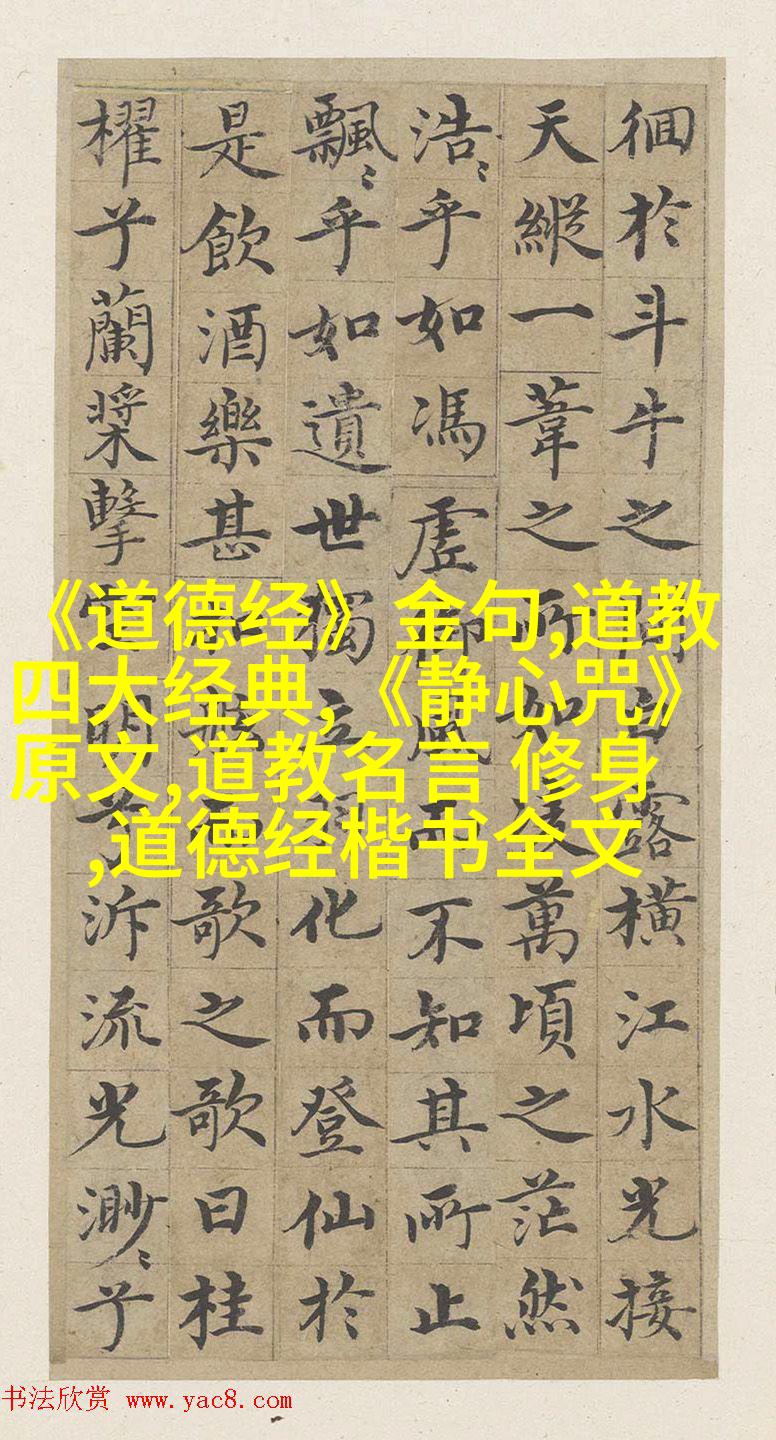 徊於斗牛之間白露橫江水光接
天縱一葦之所如凌萬頃之茫然
浩〻乎如馮虛御風而不知其所止
飄〻乎如遺世獨立羽化而登仙於
是飲酒樂甚扣舷而歌之歌曰桂
櫂兮蘭槳擊空明兮泝流光渺〻兮
《道德经》金句,道教
四大经典,《静心咒》
原文,道教名言 修身
,道德经楷书全文
书法欣赏 www.yac8.com